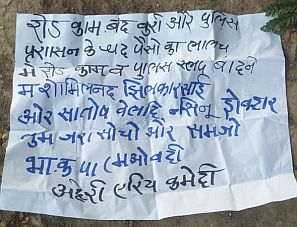 रोड काम बंद करो और पुलिस
प्रशासन के चंद पैसो का लालच
मे रोड काम व पुलिस स्लप बांदने
मे शामिलनंद झिलकारसाई
ओर सातोष वेलादि नसिनू डोक्टर
तुम जरा सोचो और समजो
भा.क पा (माओवदी
अहेरी एरिय कमेटी